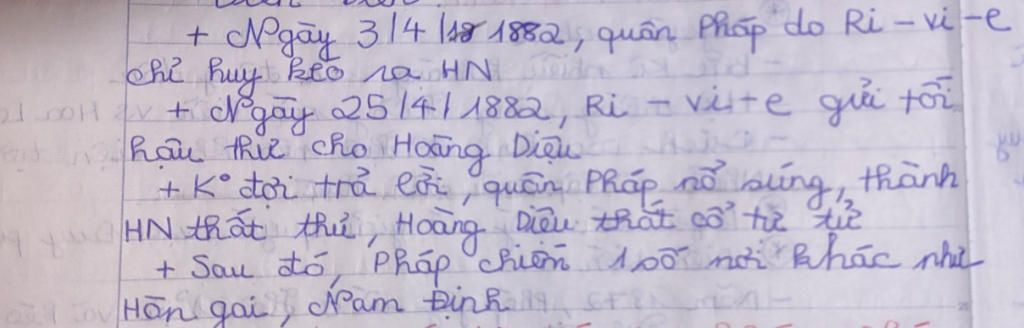 + Ngày 3/4/1882, quân Pháp do Ri-vi-e
chỉ huy kéo ra HN
+ Ngày 25/4/1882, Ri-vi-e gửi tối
hậu thư cho Hoàng Diệu
+ K° đợi trả lời, quân Pháp nổ súng, thành
HN thất thủ, Hoàng Diệu thắt cổ tự tử
+ Sau đó, Pháp chiếm 1 số nơi khác như
Hòn gai, Nam Định